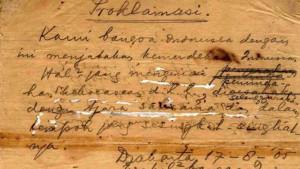 Proklamasi.
Kami bangsa Indonesia dengan
ini menjatakan kemerdekaan Indonesia.
Hal² jang mengenai
kekoeasaan d.l.l.
dengan tjara saksama dan dalam
tempoh jang sesingkat-singkat
nja.
Djakarta 17-8-'05